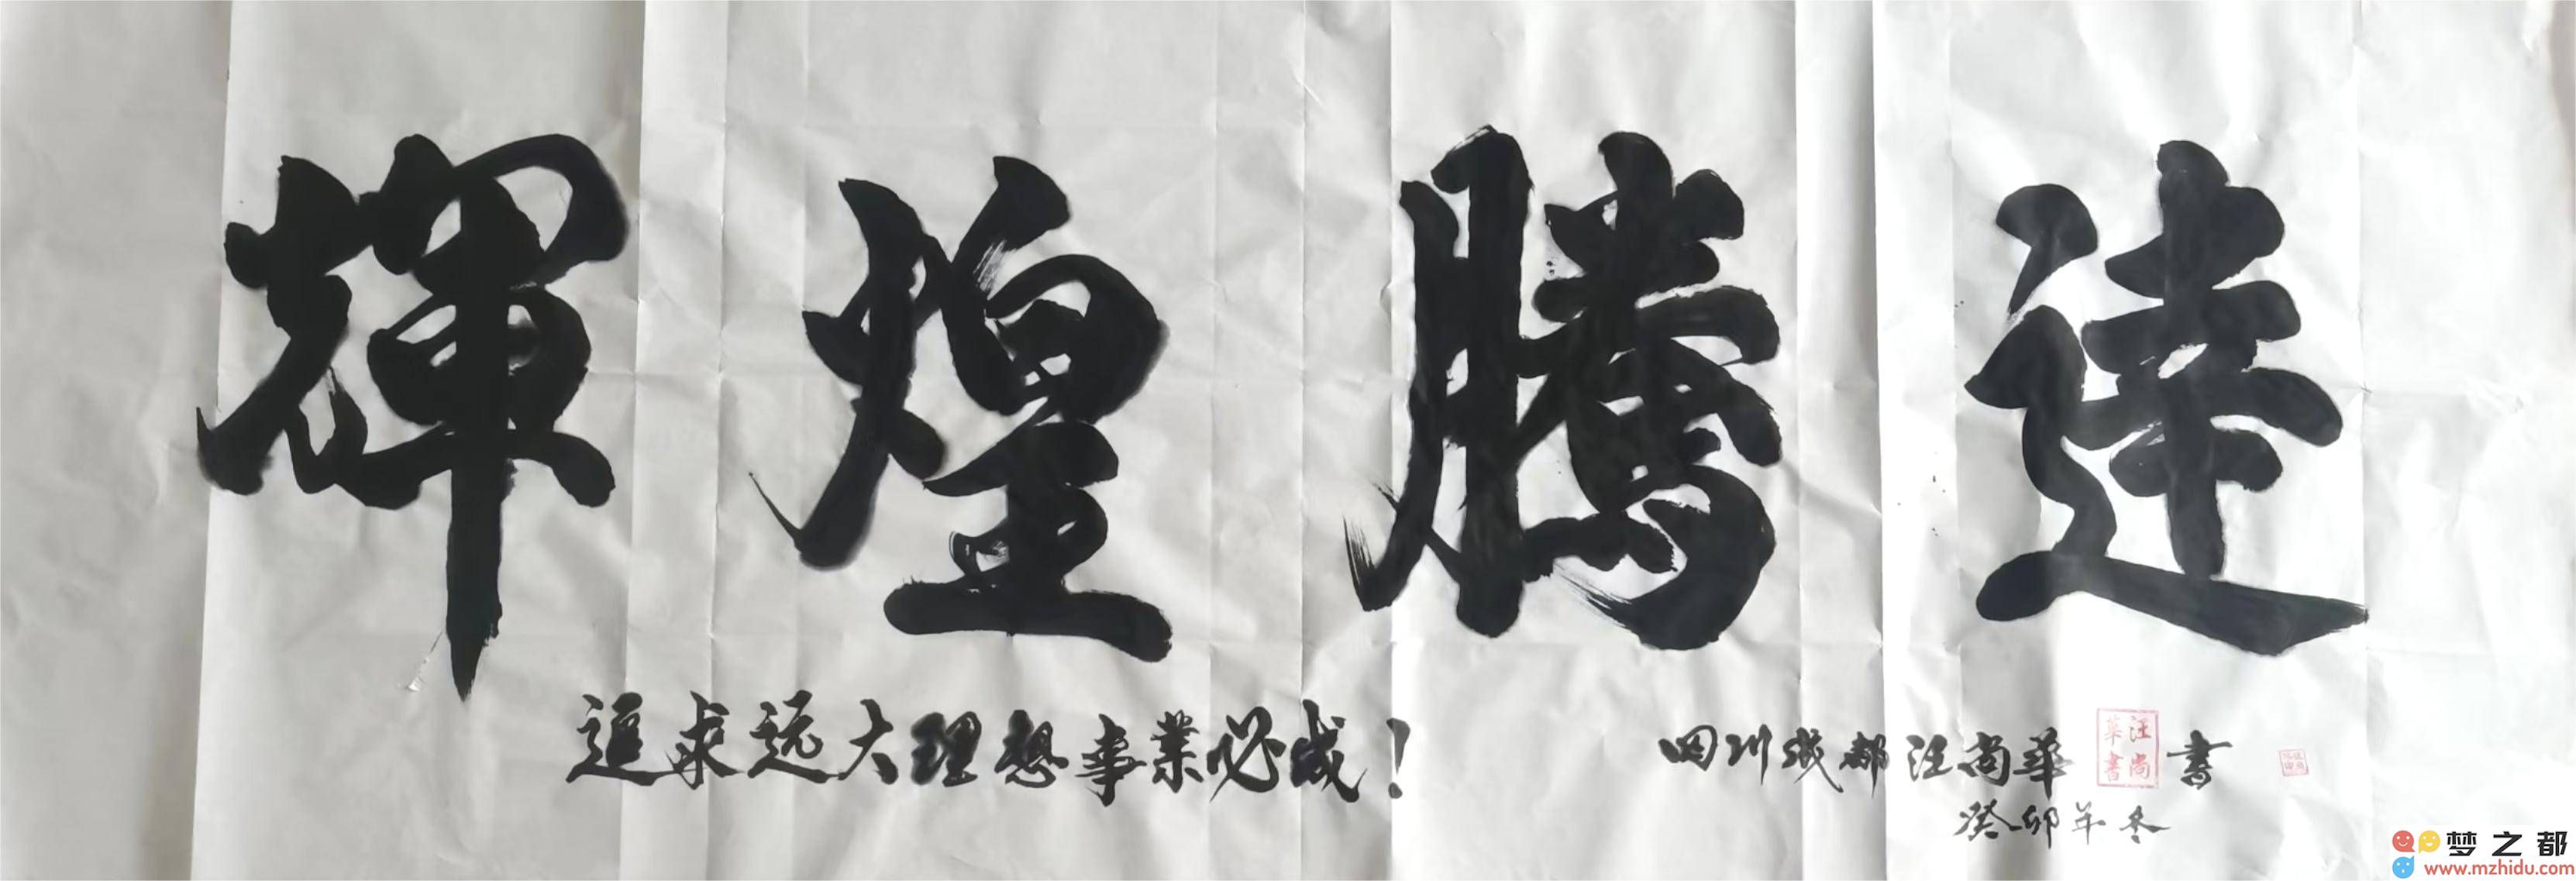 輝煌騰達
追求远大理想事業必成！
四川成都汪尚華書
汪尚華書
癸卯年冬
梦之都
www.mzhidu.com